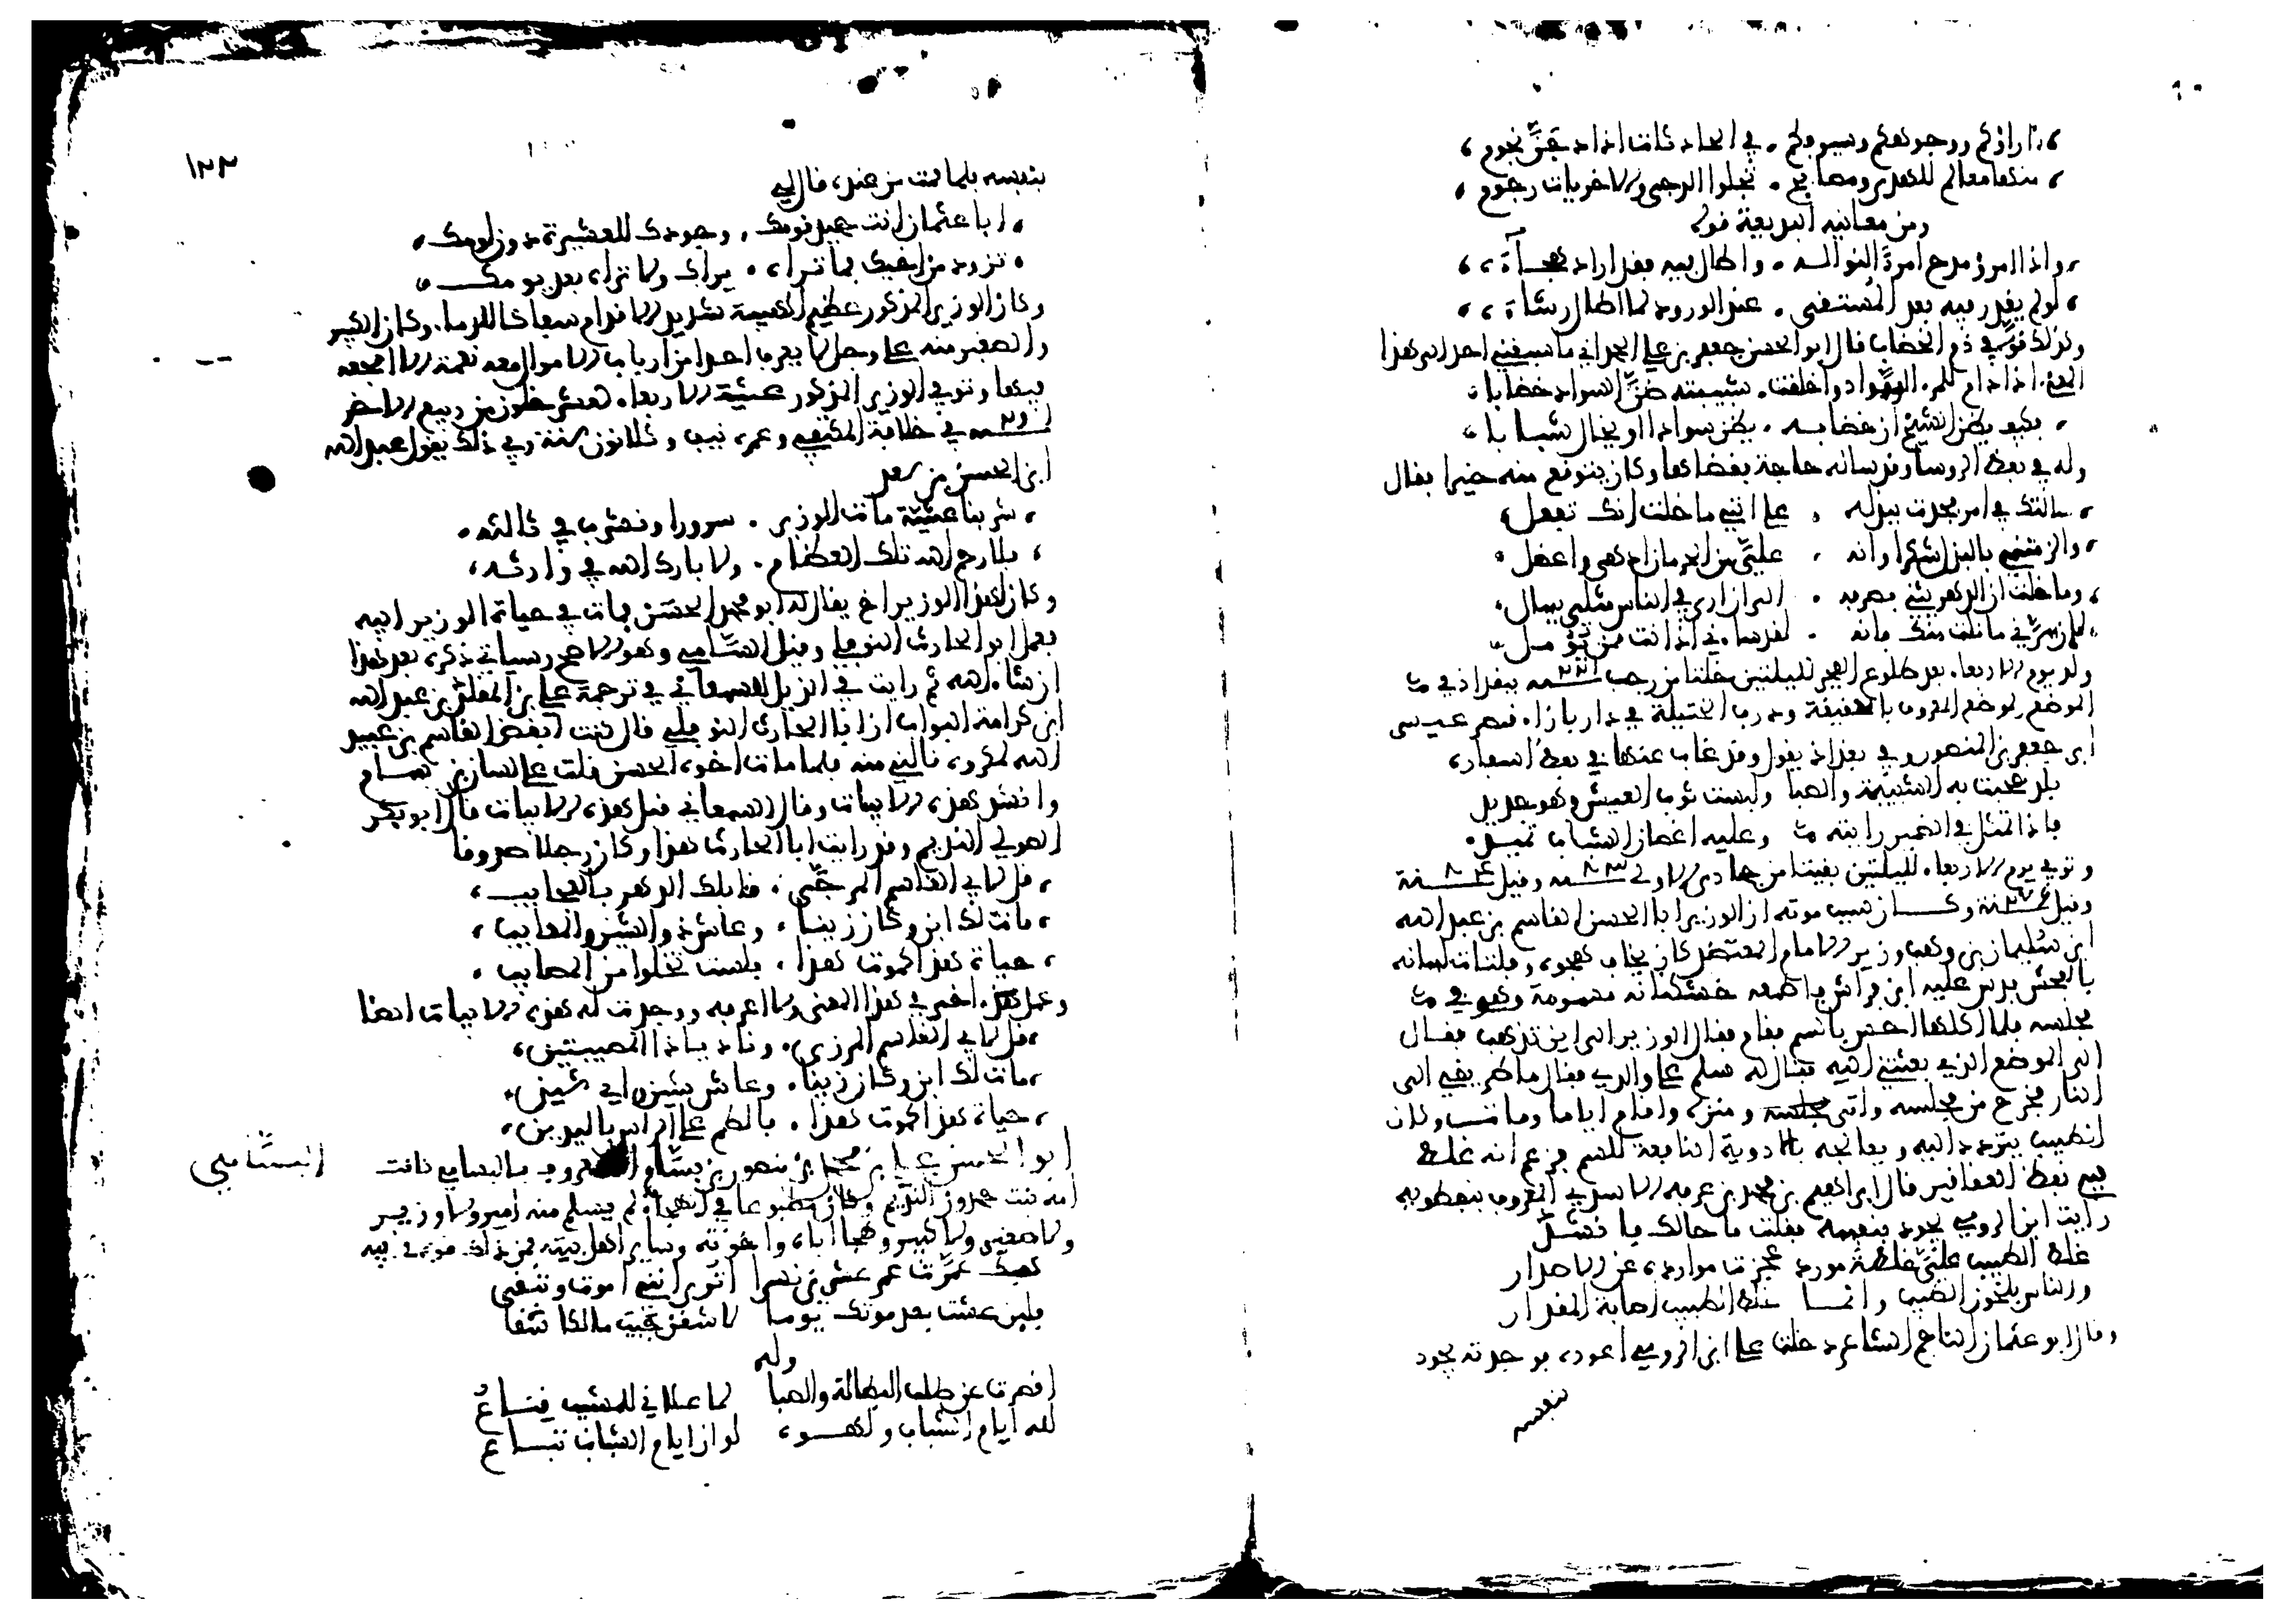 آراؤكم ووجوهكم وسيوفكم . في الحادثات اذا دجون نجوم
منها معالم للهدى ومصابح . تجلوا الدجى والاخريات رجوم
ومن معانيه البديعة قوله
واذا امرؤ مدح امرءًا لنواله . واطال فيه فقد اراد هجاءه
لو لم يقدر فيه بعد المستقى . عند الورود لما اطال رشاءه
وكذلك قوله في ذم الخضاب قال ابو الحسن جعفر بن علي الحمداني ما سبقه احد الى هذا
المعنى اذا دام للمرء السواد واخلقت . شبيبته ظن السواد خضابا
فكيف يظن الشيخ ان خضابه . يظن سوادا او يخال شبابا
وله في بعض الروسا وقد سأله حاجة فقضاها وكان يتوقع منه خيرا فقال
سالتك في امر فجدت ببذله . على انني ما خلت انك تفعل
والزمتني بالبذل شكرا وانه . علي من الحرمان ادهى واعضل
وما خلت ان الدهر يثني بصرفه . الى ان ارى في الناس مثلي يسال
لان سرني ما نلت منك فانه . لقد ساءني اذ انت ممن يؤمل
ولد يوم الاربعا بعد طلوع الفجر لليلتين خلتا من رجب ٢٢١ سنة ببغداد في
الموضع المعروف بالعقيقة ودرب الختلية في دار بازاء قصر عيسى
ابن جعفر بن المنصور وفي بغداد يقول وقد غاب عنها في بعض اسفاره
بلد صحبت به الشبيبة والصبا ولبست ثوب العيش وهو جديد
فاذا تمثل في الضمير رايته وعليه اغصان الشباب تميد
وتوفي يوم الاربعا لليلتين بقيتا من جمادى الاولى سنة ٢٨٣ وقيل سنة ٢٨٤
وقيل سنة ٢٧٦ وكان سبب موته ان الوزير ابا الحسن القاسم بن عبد الله
ابن سليمان بن وهب وزير الامام المعتضد كان يخاف هجوه وفلتات لسانه
بالفحش فدس عليه ابن فراش فاطعمه خشكنانه مسمومة وهو في
مجلسه فلما اكلها احس بالسم فقام فقال الوزير الى اين تذهب فقال
الى الموضع الذي بعثتني اليه فقال له سلم على والدي فقال ما طريقي الى
النار فخرج من مجلسه واتى منزله واقام اياما ومات وكان
الطبيب يتردد اليه ويعالجه بالادوية النافعة للسم فزعم انه غلط
في بعض العقاقير قال ابراهيم بن محمد بن عرفه الاسدي المعروف بنفطويه
رايت ابن الرومي يجود بنفسه فقلت ما حالك فانشد
غلط الطبيب علي غلطة مورد عجزت موارده عن الاصدار
والناس يلحون الطبيب وانما غلط الطبيب اصابة المقدار
وقال ابو عثمان الناجم الشاعر دخلت على ابن الرومي اعوده فوجدته يجود
بنفسه
١٢٢
بنفسه فلما قمت من عنده قال لي
ابا عثمان انت حميد قومك . وجودك للعشيرة دون لومك
تزود من اخيك فما تراه . يراك ولا تراه بعد يومك
وكان الوزير المذكور عظيم الهيبة شديد الاقدام سفاكا للدما وكان الكبير
والصغير منه على وجل لا يعرف احدا من ارباب الاموال معه نعمة الا افجعه
فيها وتوفي الوزير المذكور عشية الاربعا لعشر خلون من ربيع الاخر
سنة ٢٩١ في خلافة المكتفي وعمره نيف وثلاثون سنة وفي ذلك يقول عبد الله
ابن الحسن بن سعد
شربنا عشية مات الوزير . سرورا ونشرب في ثالثه
فلا رحم الله تلك العظام . ولا بارك الله في وارثه
وكان لهذا الوزير اخ يقال له ابو محمد الحسن فمات في حياة الوزير ابيه
فعمل ابو الحارث النوفلي وقيل البسامي وهو الاصح وسياتي ذكره بعد هذا
ان شاء الله ثم رايت في الذيل للسمعاني في ترجمة علي بن المقلد بن عبد الله
ابن كرامة البواب ان ابا الحارث النوفلي قال كنت ابغض القاسم بن عبيد
الله لمكروه نالني منه فلما مات اخوه الحسن قلت على لسان ابن بسام
وانشد هذه الابيات وقال السمعاني قبل هذه الابيات قال ابو بكر
الصولي النديم وقد رايت ابا الحارث هذا وكان رجلا صدوقا
قل لابي القاسم المرجى . قابلك الدهر بالعجايب
مات لك ابن وكان زينا . وعاش ذو الشين والمعايب
حياة هذا كموت هذا . فلست تخلوا من المصايب
وعمل هذا اخر في هذا المعنى ولا اعرفه ووجدت له هذه الابيات ايضا
قل لابي القاسم المرزى . وناد يا ذا المصيبتين
مات لك ابن وكان زينا . وعاش شين واي شين
حياة هذا كموت هذا . فالطم على الراس باليدين
البسامي
ابو الحسن علي بن محمد بن منصور بن بسام المعروف بالبسامي كانت
امه بنت حمدون النديم وكان مطبوعا في الهجاء لم يسلم منه امير ولا وزير
ولا صغير ولا كبير وهجا اباه واخوته وساير اهل بيته فمن ذلك قوله في ابيه
هبك عمرت عمر عشرين نسرا اترى انني اموت وتبقى
فلين عشت بعد موتك يوما لاشقن جيب مالك شقا
وله
اقصرت عن طلب البطالة والصبا لما علاني للمشيب قناع
لله ايام الشباب ولهوه لو ان ايام الشباب تباع